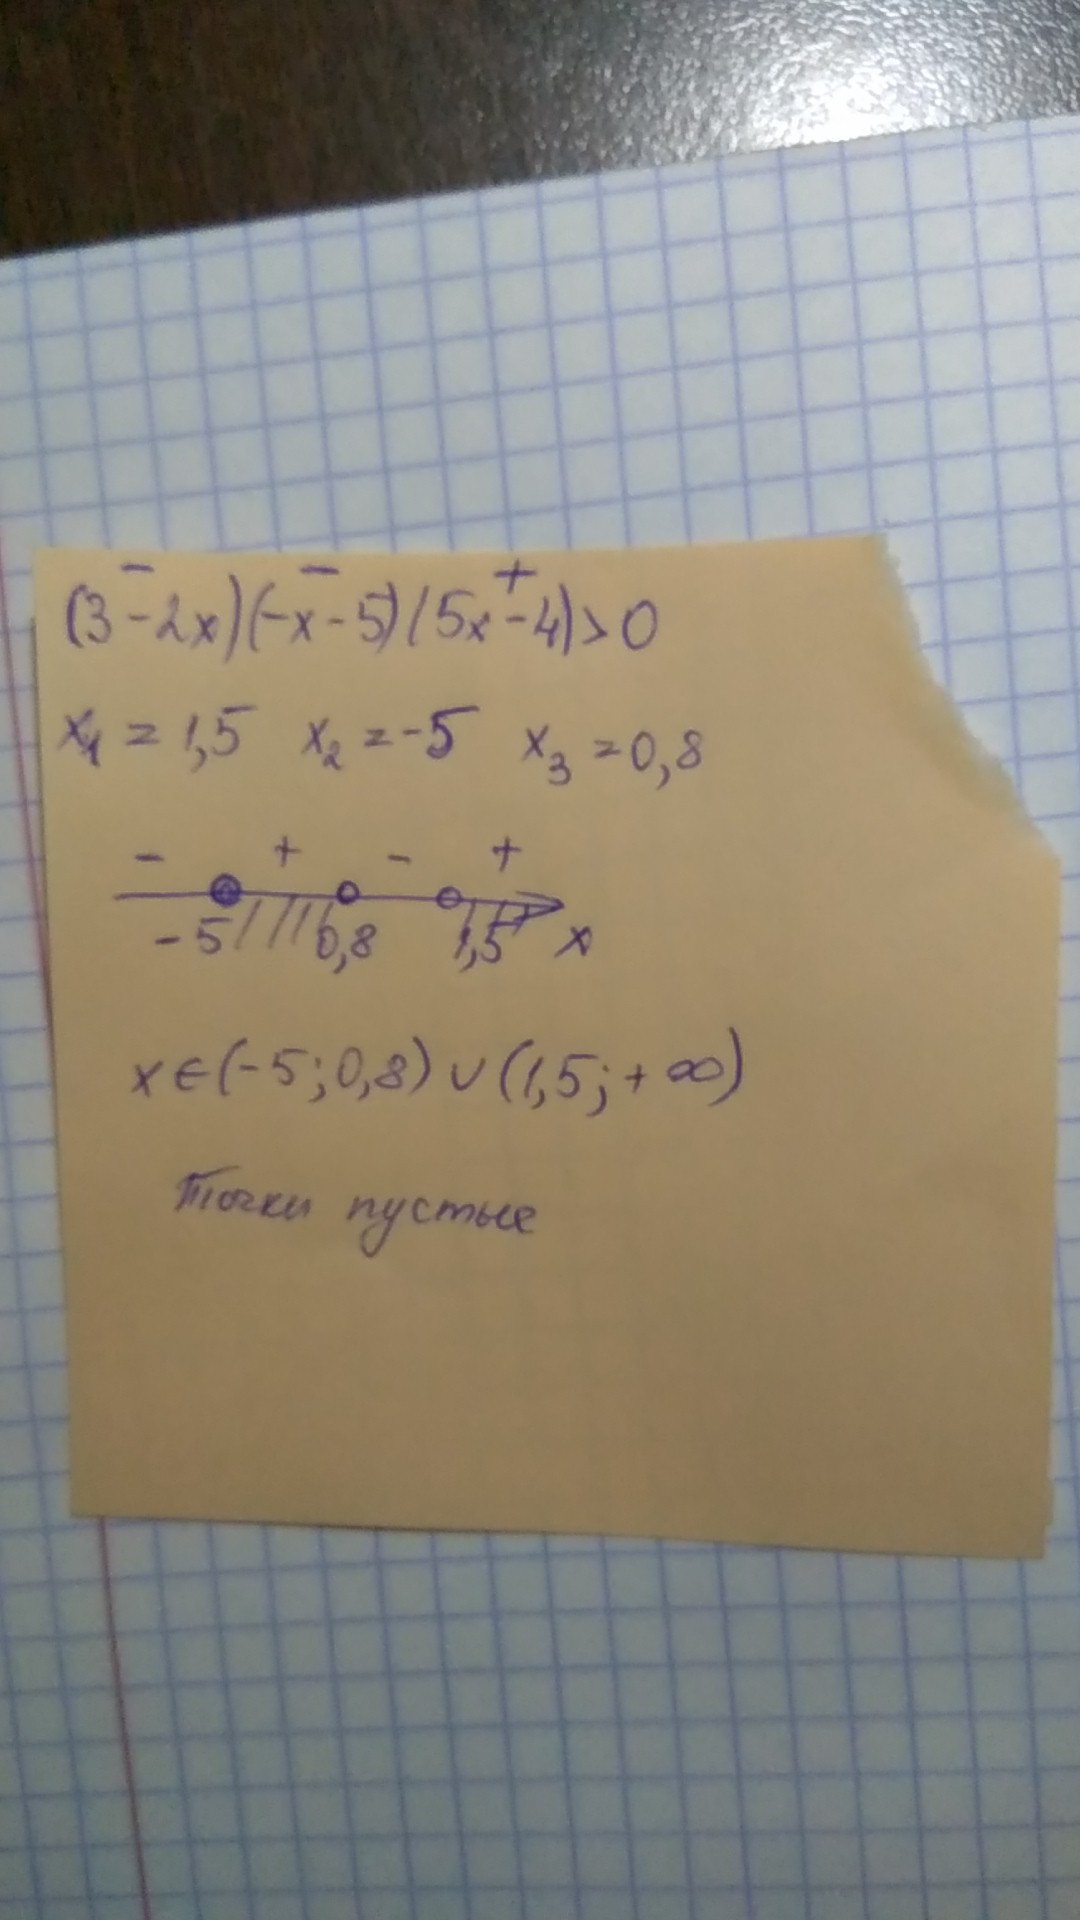 - - +
(3-2x)(-x-5)(5x-4)>0
x₁ = 1,5 x₂ = -5 x₃ = 0,8
- + - +
-5 0,8 1,5 x
x∈(-5;0,8)∪(1,5;+∞)
Точки пустые